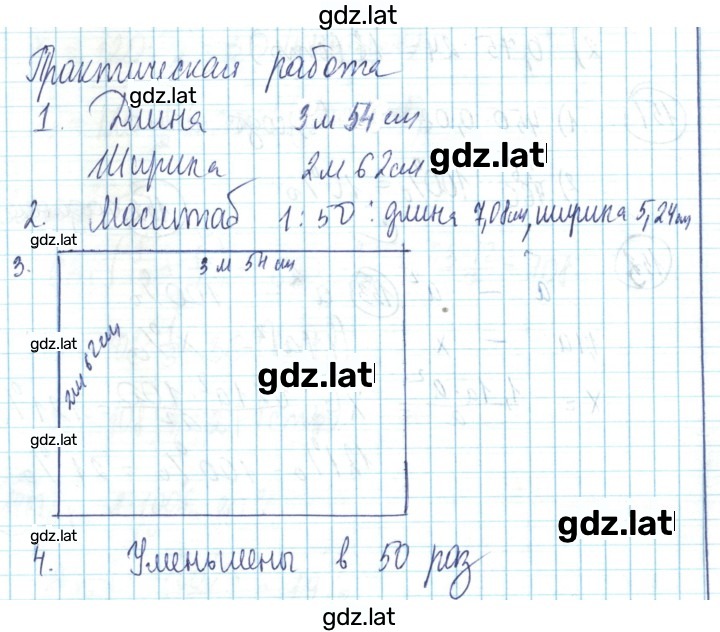 gdz.lat
Практическая работа
gdz.lat
1. Длина 3 м 54 см
Ширина 2м 62см gdz.lat
2. Масштаб 1:50: длина 7,08см, ширина 5,24см
gdz.lat
3. 3 м 54 см
gdz.lat
2м 62см
gdz.lat
gdz.lat
gdz.lat
gdz.lat
4. Уменьшены в 50 раз
gdz.lat